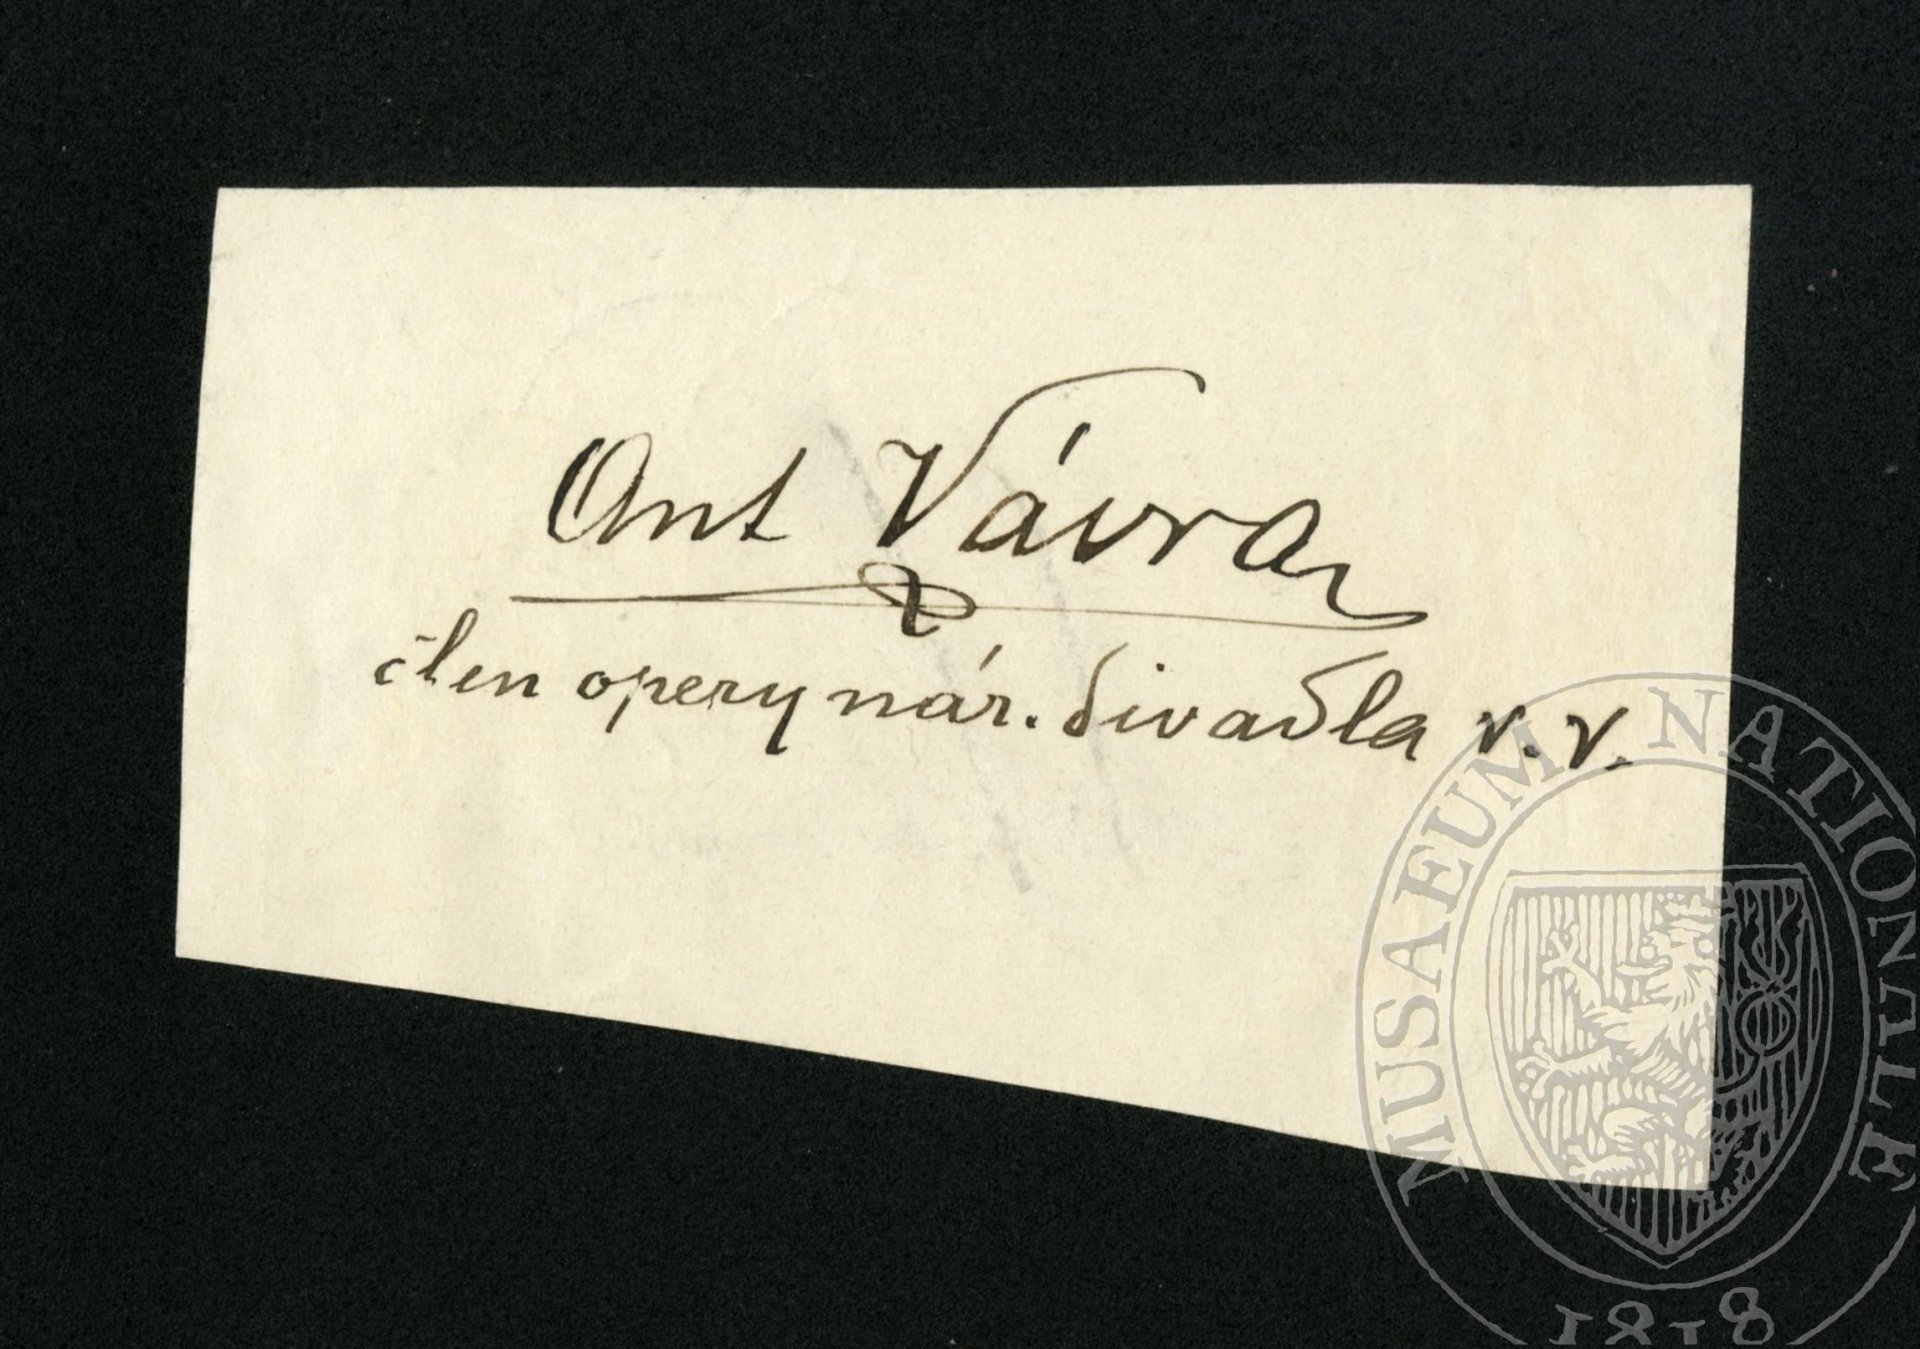 Ant Vávra
člen opery nár. divadla v. v.
MUSAEUM NATIONALE
1818